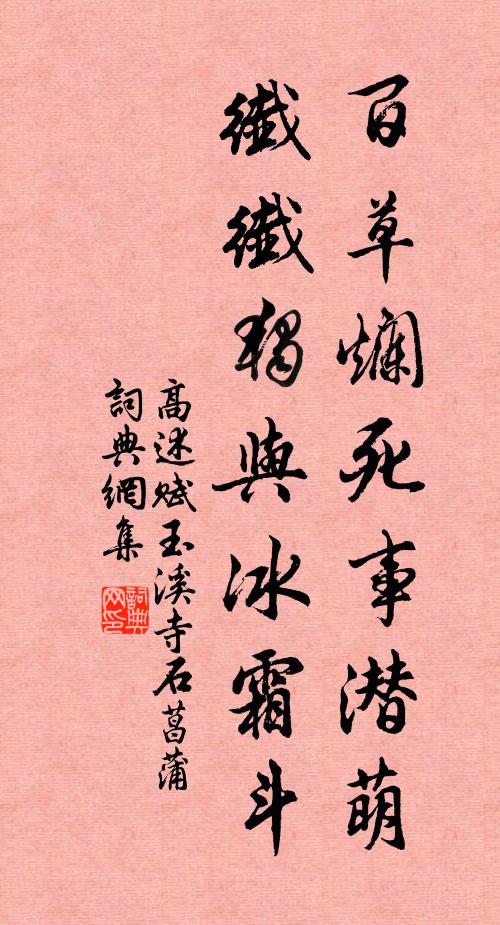 百草爛死事潜萌
纖纖獨與冰霜斗
高述賦玉溪寺石菖蒲
詞典網集
詞典網印